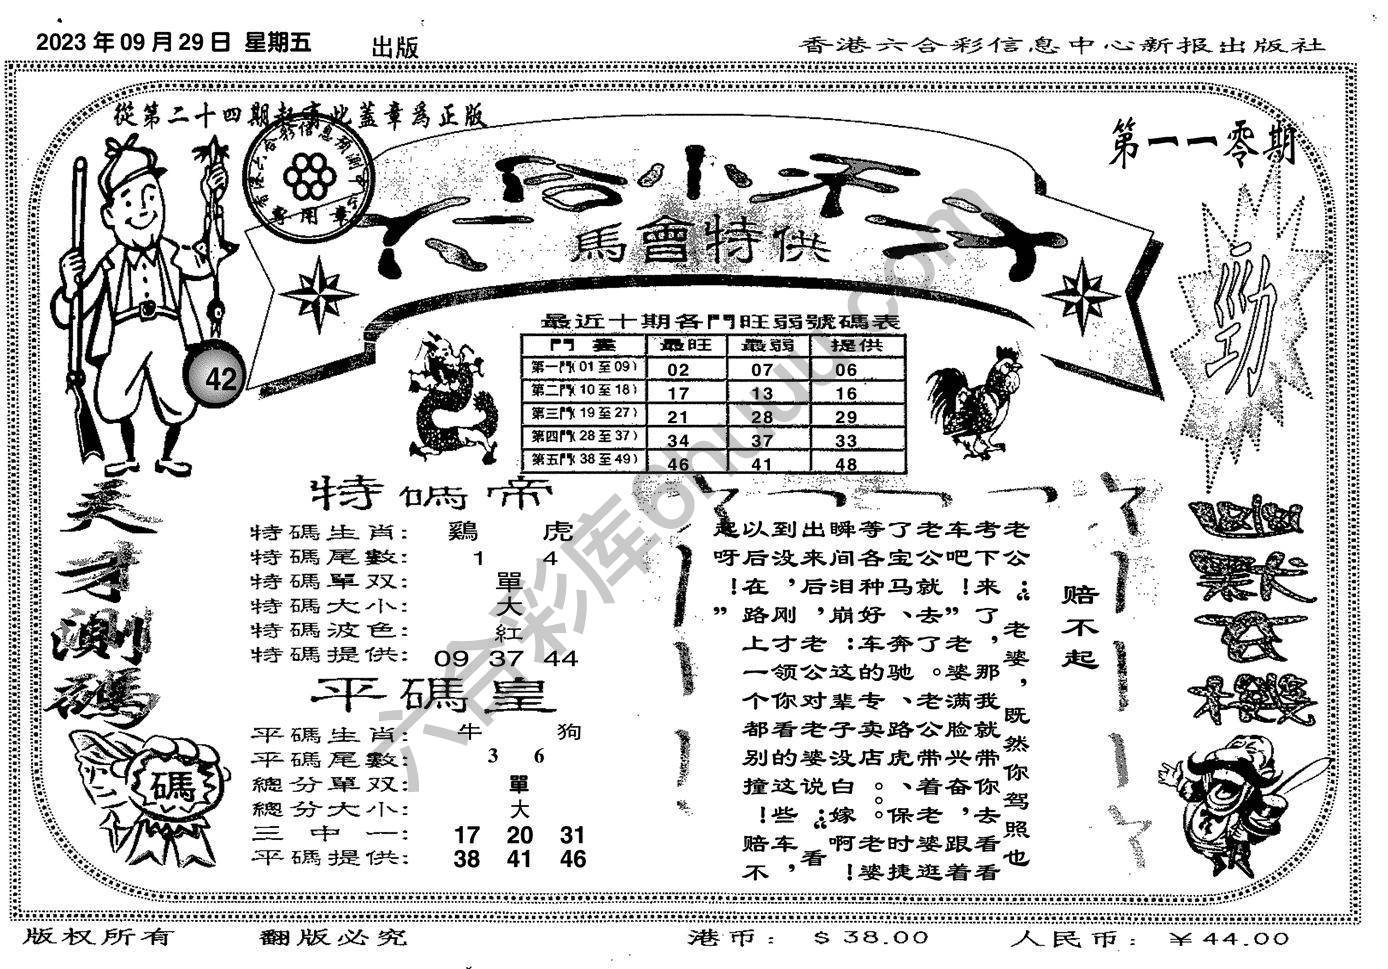 2023 年 09 月 29 日 星期五
出版
香港六合彩信息中心新报出版社
從第二十四期起有此蓋章爲正版
第一一零期
六合小天才
馬會特供
勁
42
專用章
最近十期各門旺弱號碼表
門 最旺 最弱 提供
第一門(01至09) 02 07 06
第二門(10至18) 17 13 16
第三門(19至27) 21 28 29
第四門(28至37) 34 37 33
第五門(38至49) 46 41 48
天才測碼
碼
特碼帝
特碼生肖: 鷄 虎
特碼尾數: 1 4
特碼單双: 單
特碼大小: 大
特碼波色: 紅
特碼提供: 09 37 44
平碼皇
平碼生肖: 牛 狗
平碼尾數: 3 6
總分單双: 單
總分大小: 大
三中一: 17 20 31
平碼提供: 38 41 46
赔不起
老公：“老婆，既然你驾照也
考下来了，那我就带你去看看
车吧！”老婆满脸兴奋，跟着
老公就去了。老公带着老婆逛
了宝马、奔驰、路虎、保时捷
等各种好车的专卖店。。老婆
瞬间泪崩：这辈子没白嫁啊！
出来后，老公对老婆说：“看
到没，刚才领你看的这些车，
以后在路上一个都别撞！赔不
起呀！”
版权所有
翻版必究
港币: $38.00
人民币: ￥44.00
六合彩库6huuu.com